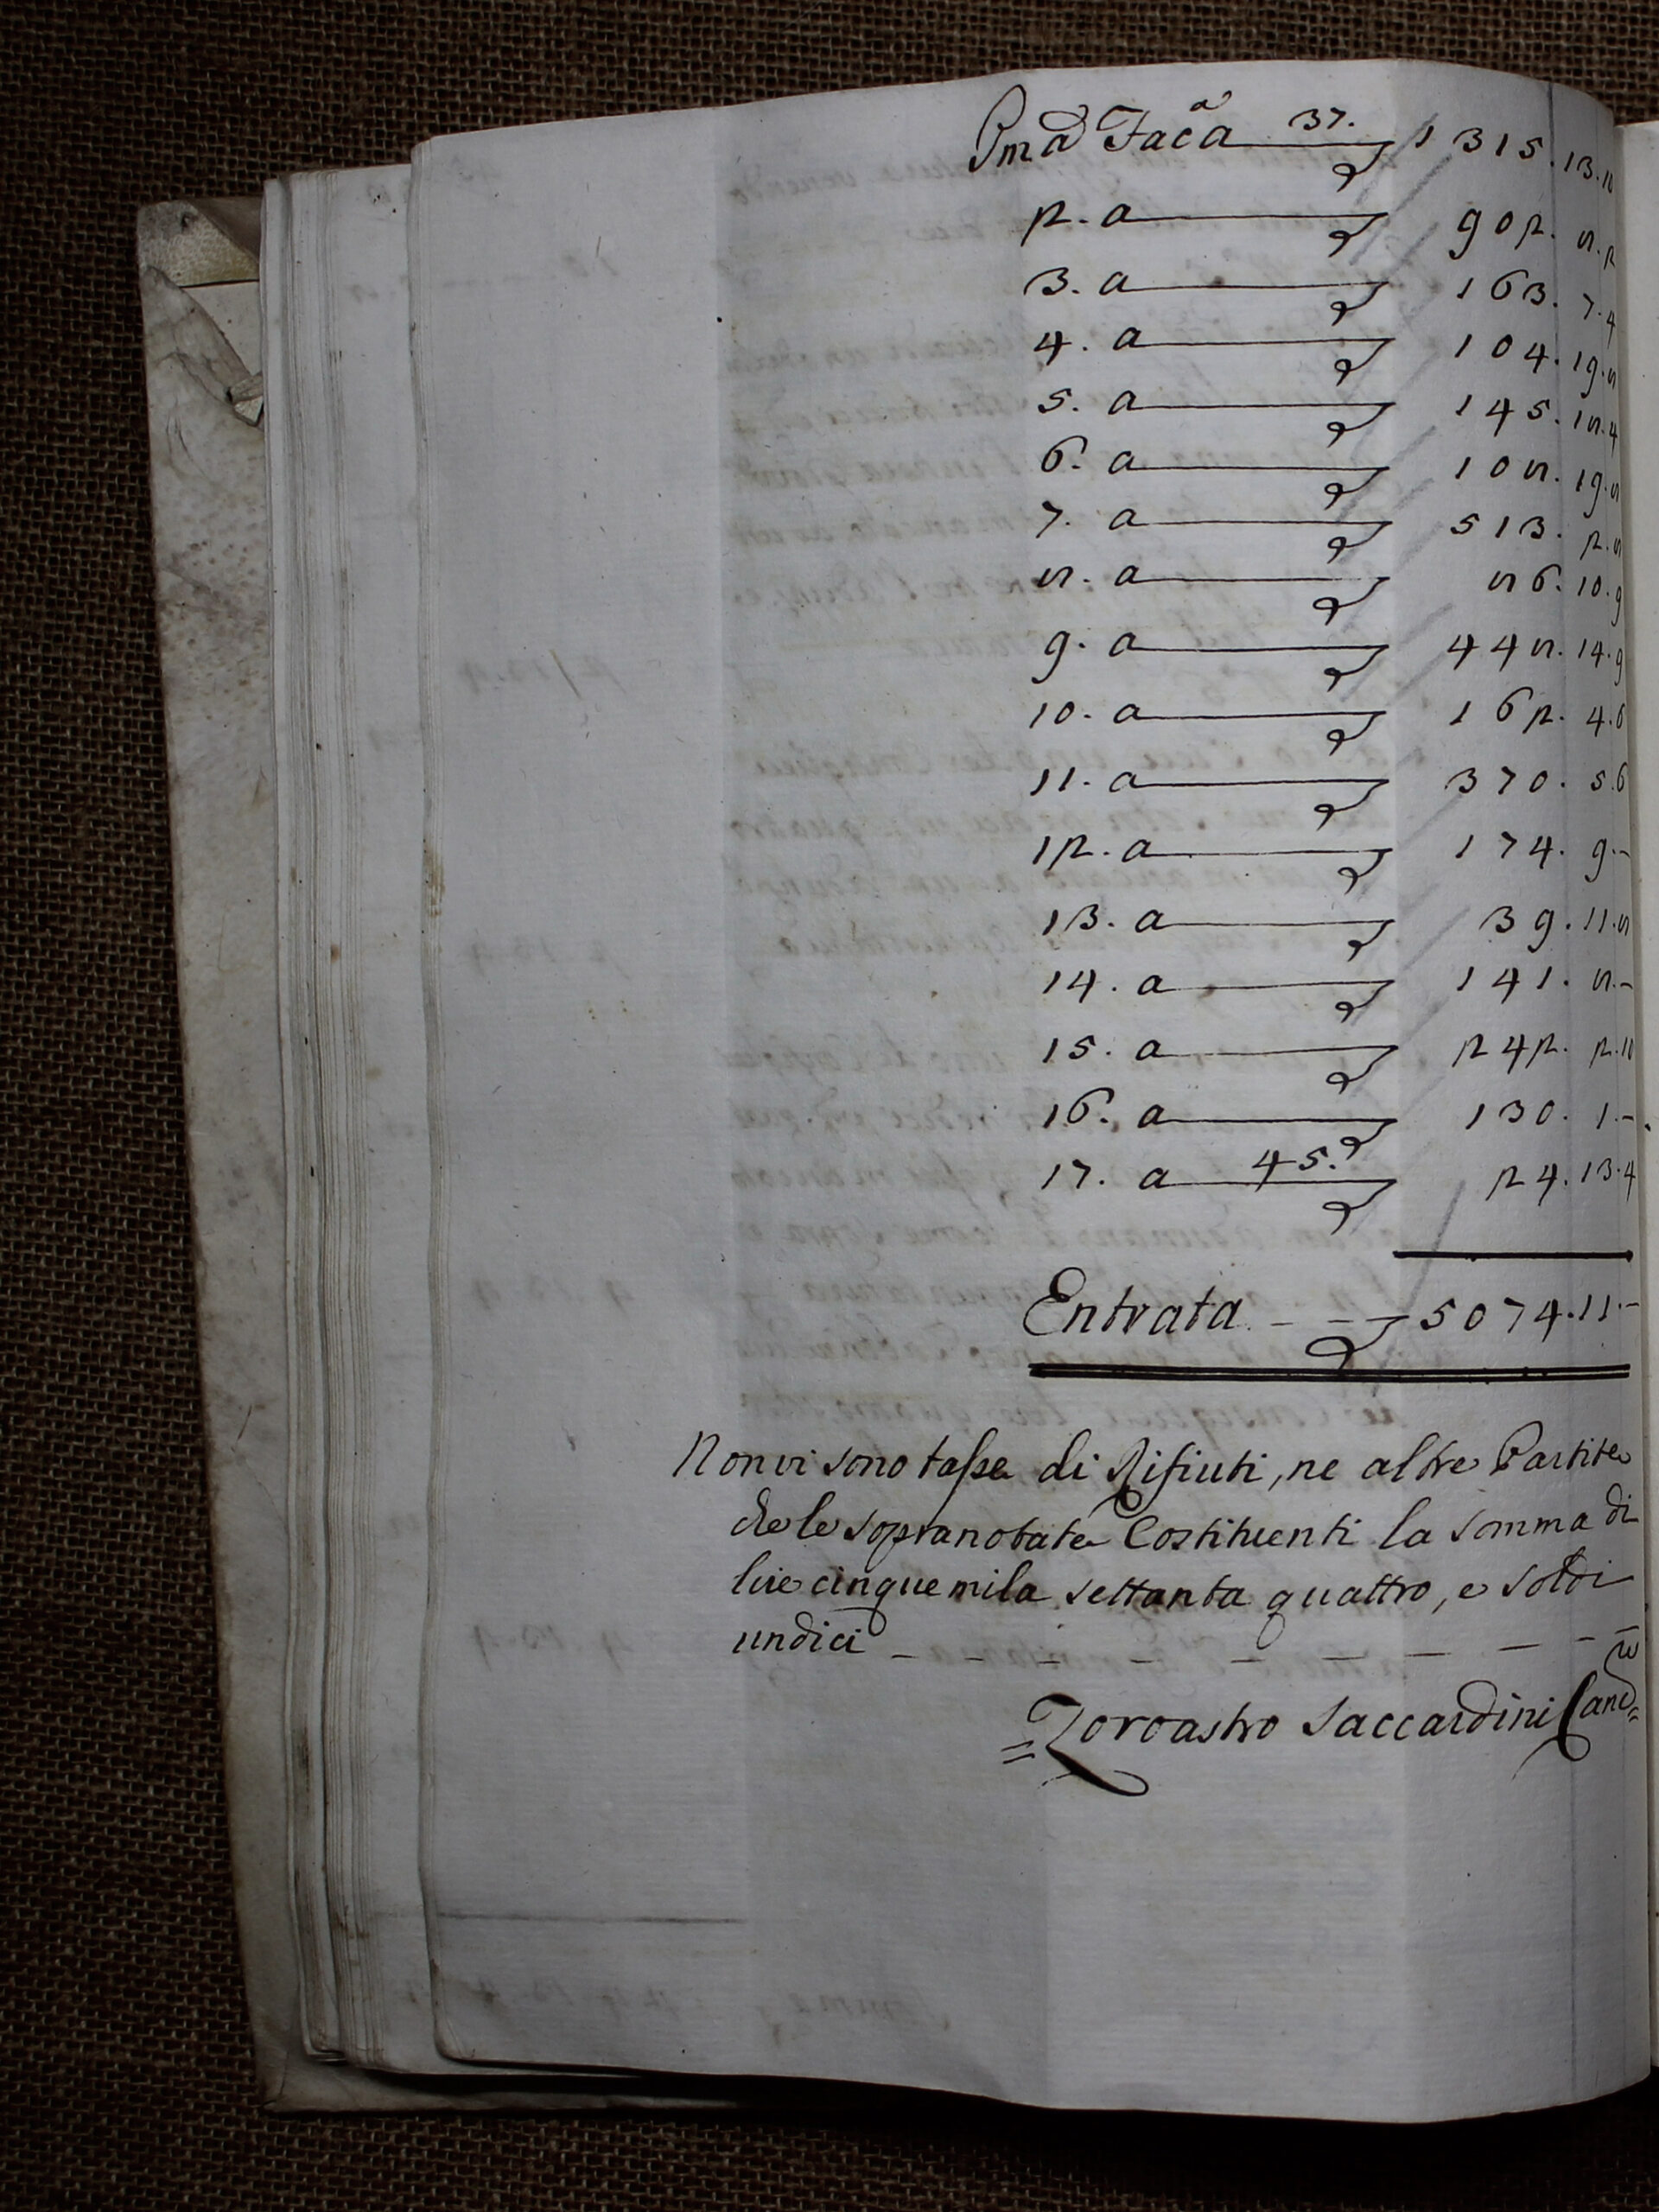 Pma Facᵃa 37. 1315.13.10
2. a 902. 8.2
3. a 163. 7.4
4. a 104. 19.8
5. a 145. 18.4
6. a 108. 19.8
7. a 513. 2.8
8. a 86. 10.9
9. a 448. 14.9
10. a 162. 4.6
11. a 370. 5.6
12. a 174. 9.-
13. a 39. 11.8
14. a 141. 8.-
15. a 242. 2.10
16. a 130. 1.-
17. a 45. 24. 13.4
Entrata - - 5074.11.-
Non vi sono tasse di Rifiuti, ne altre Partite
che le sopranotate Costituenti la somma di
lire cinque mila settanta quattro, e soldi
undici - - - - - - - - -
= Zoroastro Saccardini Canc.re =